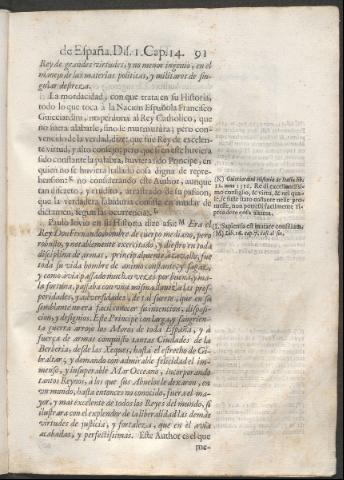 de España. Dis. 1. Cap. 14. 91
Rey de grandes virtudes, y no menor ingenio, en el
manejo de las materias politicas, y militares de sin-
gular destreza.
La mordacidad, con que trata en su Historia,
todo lo que toca à la Nacion Española Francisco
Guicciardini, no perdonò al Rey Catholico, que
no fuera alabarle, sino le murmurára; pero con-
vencido de la verdad, dize: que fue Rey de excelen-
te virtud, y alto consejo; pero que si en este huviera
sido constante la palabra, huviera sido Principe, en
quien no se huviera hallado cosa digna de repre-
hension: K no considerando este Author, aunque
tan discreto, y erudito, arrastrado de su passion,
que la verdadera sabiduria consiste en mudar de
dictamen, segun las ocurrencias. L
Paulo Jovio en su Historia dize assi: M Era el
Rey Don Fernando hombre de cuerpo mediano, pero
robusto, y notablemente exercitado, y diestro en toda
disciplina de armas, principalmente à cavallo; fue
toda su vida hombre de animo constante, y sagaz,
y como avia passado muchas vezes por buena, y ma-
la fortuna, passaba con una misma igualdad las pros-
peridades, y adversidades, de tal suerte, que en su
semblante no era facil conocer su intencion, disposi-
cion, y designios. Este Principe con larga, y sangrien-
ta guerra arrojò los Moros de toda España, y à
fuerça de armas conquistò tantas Ciudades de la
Berberia, desde las Xeques, hasta el estrecho de Gi-
braltar, y domando con admirable felicidad el im-
menso, y insuperable Mar Occeano, incorporando
tantos Reynos, à los que sus Abuelos le dexaron, en
un mundo, hasta entonces no conocido, fuera el ma-
yor, y mas excelente de todos los Reyes del mundo, si
ilustrara con el explendor de la liberalidad las demàs
virtudes de justicia, y fortaleza, que en èl avia
acabadas, y perfectissimas. Este Author es el que
me-
(K) Guicciardini Historia de Italia lib.
12. Re di excellentissi-
mo consiglio, & virtu, & nel qua-
le, se fusse stato costante nelle pro-
messe, non potresti facilmente ri-
prendere cosa alcuna.
L Sapientis est mutare consilium.
(M) Lib. 16. cap. 7.